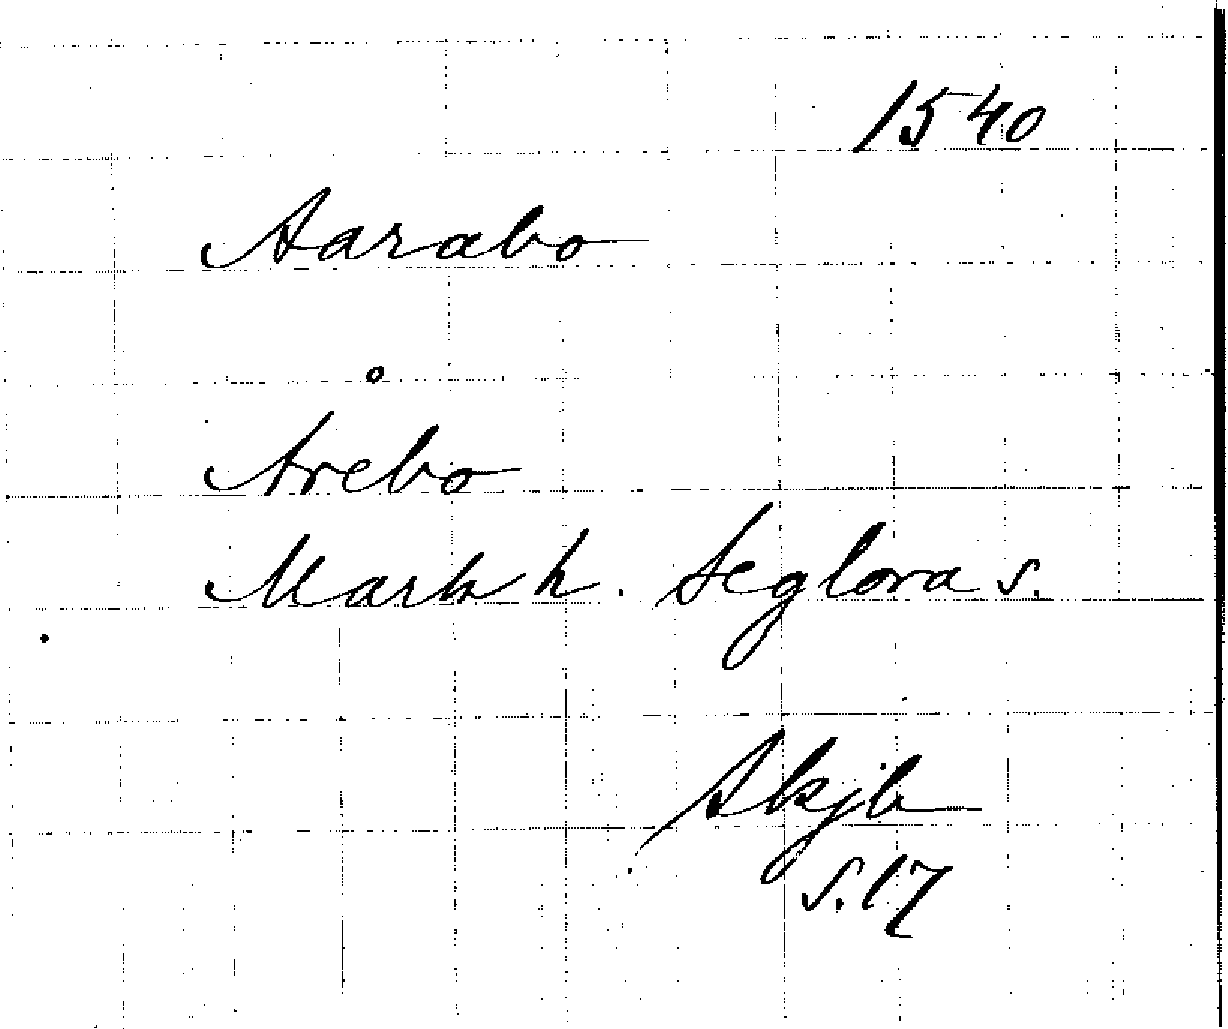 1540
Aarabo
Årebo
Mark h. Seglora s.
Skjb
s. 17